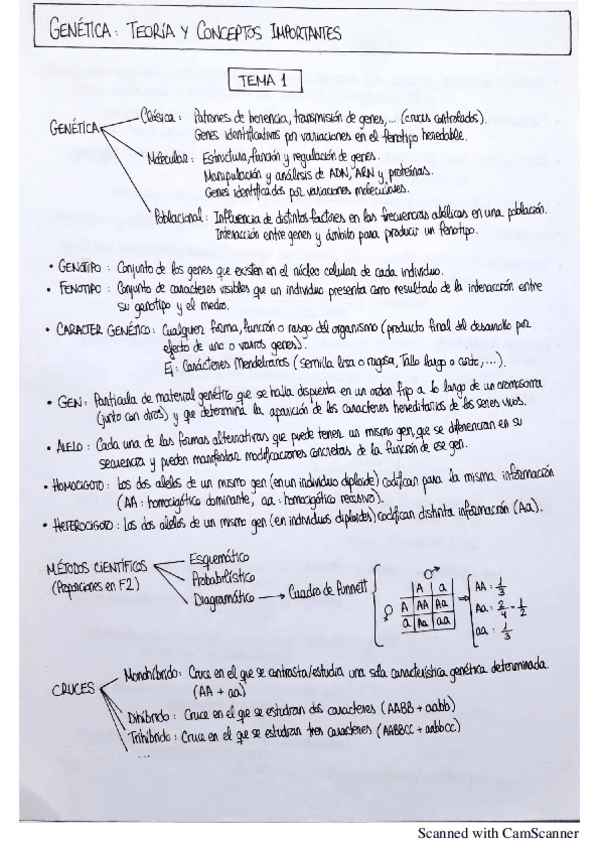 GENÉTICA: TEORÍA Y CONCEPTOS IMPORTANTES
TEMA 1
GENÉTICA
Clásica: Patrones de herencia, transmisión de genes,... (cruces controlados).
Genes identificativos por variaciones en el fenotipo heredable.
Molecular: Estructura, función y regulación de genes.
Manipulación y análisis de ADN, ARN y proteínas.
Genes identificados por variaciones moleculares.
Poblacional: Influencia de distintos factores en las frecuencias alélicas en una población.
Interacción entre genes y ámbito para producir un fenotipo.
• GENOTIPO: Conjunto de los genes que existen en el núcleo celular de cada individuo.
• FENOTIPO: Conjunto de caracteres visibles que un individuo presenta como resultado de la interacción entre
su genotipo y el medio.
• CARACTER GENÉTICO: Cualquier forma, función o rasgo del organismo (producto final del desarrollo por
efecto de uno o varios genes).
Ej: Carácteres Mendelianos (semilla lisa o rugosa, Tallo largo o corto,...).
• GEN: Partícula de material genético que se halla dispuesta en un orden fijo a lo largo de un cromosoma
(junto con otros) y que determina la aparición de los caracteres hereditarios de los seres vivos.
• ALELO: Cada una de las formas alternativas que puede tener un mismo gen, que se diferencian en su
secuencia y pueden manifestar modificaciones concretas de la función de ese gen.
• HOMOCIGOTO: Los dos alelos de un mismo gen (en un individuo diploide) codifican para la misma información
(AA: homocigótico dominante, aa: homocigótico recesivo).
• HETEROCIGOTO: Los dos alelos de un mismo gen (en individuos diploides) codifican distinta información (Aa).
MÉTODOS CIENTÍFICOS
(Proporciones en F2)
Esquemático
Probabilístico
Diagramático → Cuadro de Punnett
♂
♀
A a
A AA Aa
a Aa aa
AA: 1/3
Aa: 2/4 = 1/2
aa: 1/3
CRUCES
Monohíbrido: Cruce en el que se contrasta/estudia una sola característica genética determinada.
(AA + aa)
Dihíbrido: Cruce en el que se estudian dos caracteres (AABB + aabb)
Trihíbrido: Cruce en el que se estudian tres caracteres (AABBCC + aabbCC)
...
Scanned with CamScanner